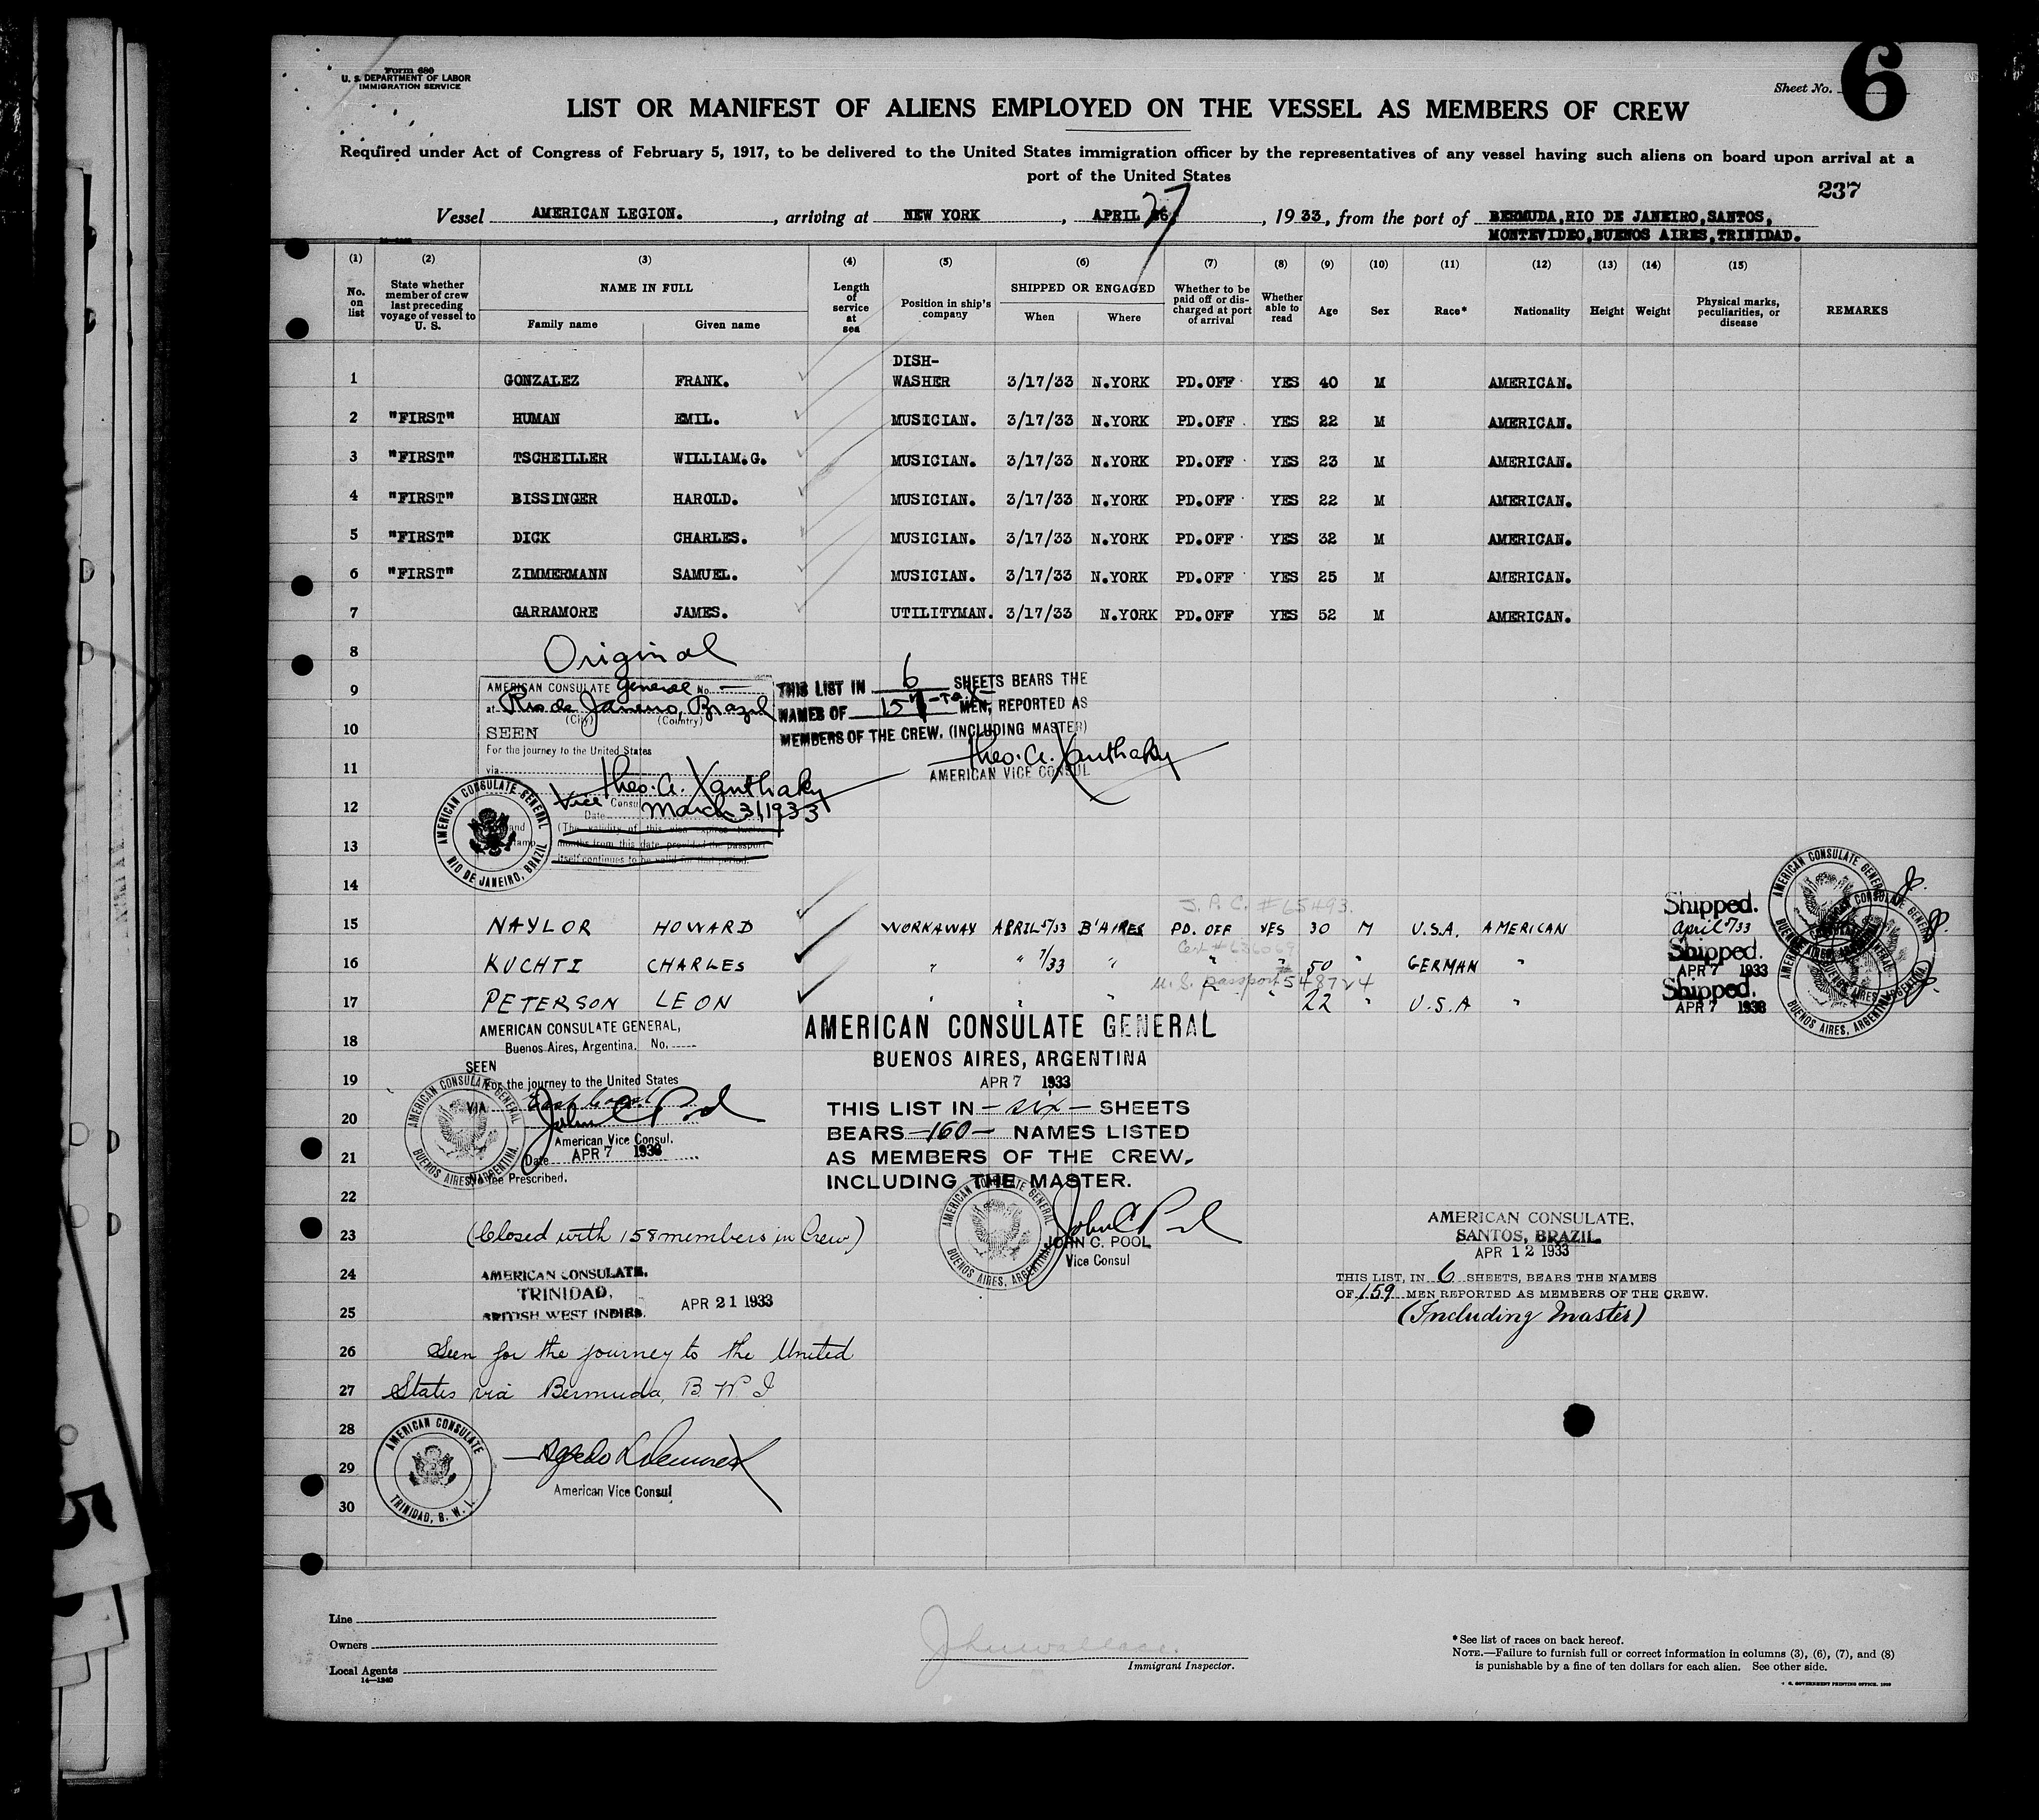 Form 680
U. S. DEPARTMENT OF LABOR
IMMIGRATION SERVICE
Sheet No. 6
LIST OR MANIFEST OF ALIENS EMPLOYED ON THE VESSEL AS MEMBERS OF CREW
Required under Act of Congress of February 5, 1917, to be delivered to the United States immigration officer by the representatives of any vessel having such aliens on board upon arrival at a
port of the United States
237
Vessel AMERICAN LEGION. , arriving at NEW YORK , APRIL 27 , 19 33, from the port of BERMUDA,RIO DE JANEIRO,SANTOS,
MONTEVIDEO,BUENOS AIRES,TRINIDAD.
(1) (2) (3) (4) (5) (6) (7) (8) (9) (10) (11) (12) (13) (14) (15)
No. on list State whether member of crew last preceding voyage of vessel to U. S. NAME IN FULL Family name Given name Length of service at sea Position in ship's company SHIPPED OR ENGAGED When Where Whether to be paid off or discharged at port of arrival Whether able to read Age Sex Race* Nationality Height Weight Physical marks, peculiarities, or disease REMARKS
DISH-
1 GONZALEZ FRANK. WASHER 3/17/33 N.YORK PD.OFF YES 40 M AMERICAN.
2 "FIRST" HUMAN EMIL. MUSICIAN. 3/17/33 N.YORK PD.OFF YES 22 M AMERICAN.
3 "FIRST" TSCHEILLER WILLIAM.G. MUSICIAN. 3/17/33 N.YORK PD.OFF YES 23 M AMERICAN.
4 "FIRST" BISSINGER HAROLD. MUSICIAN. 3/17/33 N.YORK PD.OFF YES 22 M AMERICAN.
5 "FIRST" DICK CHARLES. MUSICIAN. 3/17/33 N.YORK PD.OFF YES 32 M AMERICAN.
6 "FIRST" ZIMMERMANN SAMUEL. MUSICIAN. 3/17/33 N.YORK PD.OFF YES 25 M AMERICAN.
7 GARRAMORE JAMES. UTILITYMAN. 3/17/33 N.YORK PD.OFF YES 52 M AMERICAN.
8 Original
9 AMERICAN CONSULATE General No. —
at Rio de Janeiro, Brazil
(City) (Country)
10 SEEN
For the journey to the United States
11 via
Theo. A. Xanthaky
12 Vice Consul
Date March 31, 1933
(The validity of this visa expires twelve
13 months from this date, provided the passport
itself continues to be valid for that period.
AMERICAN CONSULATE GENERAL
RIO DE JANEIRO, BRAZIL
THIS LIST IN 6 SHEETS BEARS THE
NAMES OF MEN, REPORTED AS
MEMBERS OF THE CREW. (INCLUDING MASTER)
Theo. A. Xanthaky
AMERICAN VICE CONSUL
14
15 NAYLOR HOWARD WORKAWAY APRIL 5/33 B'AIRES PD. OFF YES 30 M U.S.A. AMERICAN Shipped. April 5/33
16 KUCHTI CHARLES " " 7/33 " " " 50 " GERMAN " Shipped. APR 7 1933
U.S. passport 548724
17 PETERSON LEON " " " " " 22 " U.S.A " Shipped. APR 7 1933
AMERICAN CONSULATE GENERAL
BUENOS AIRES, ARGENTINA
AMERICAN CONSULATE GENERAL,
18 Buenos Aires, Argentina. No.
SEEN
19 For the journey to the United States
VIA East Coast
20 John C Pool
American Vice Consul.
21 Date APR 7 1933
No fee Prescribed.
AMERICAN CONSULATE GENERAL
BUENOS AIRES, ARGENTINA
AMERICAN CONSULATE GENERAL
BUENOS AIRES, ARGENTINA
APR 7 1933
THIS LIST IN — six — SHEETS
BEARS —160— NAMES LISTED
AS MEMBERS OF THE CREW,
INCLUDING THE MASTER.
AMERICAN CONSULATE GENERAL
BUENOS AIRES, ARGENTINA
John C Pool
JOHN C. POOL
Vice Consul
22
23 (Closed with 158 members in Crew)
24 AMERICAN CONSULATE,
TRINIDAD,
25 BRITISH WEST INDIES. APR 21 1933
AMERICAN CONSULATE,
SANTOS, BRAZIL
APR 12 1933
THIS LIST, IN 6 SHEETS, BEARS THE NAMES
OF 159 MEN REPORTED AS MEMBERS OF THE CREW.
(Including Master)
26 Seen for the journey to the United
27 States via Bermuda, B W I
28
29
American Vice Consul
30
AMERICAN CONSULATE
TRINIDAD, B. W. I.
Line
Owners
Local Agents
14—1240
John Wallace.
Immigrant Inspector.
*See list of races on back hereof.
NOTE.—Failure to furnish full or correct information in columns (3), (6), (7), and (8)
is punishable by a fine of ten dollars for each alien. See other side.
GOVERNMENT PRINTING OFFICE